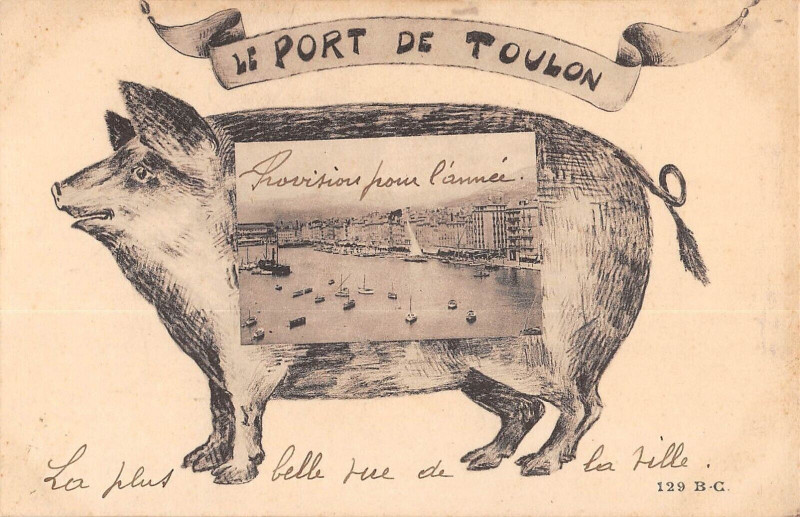 LE PORT DE TOULON
Provision pour l'année.
La plus belle vue de la ville.
129 B-C.